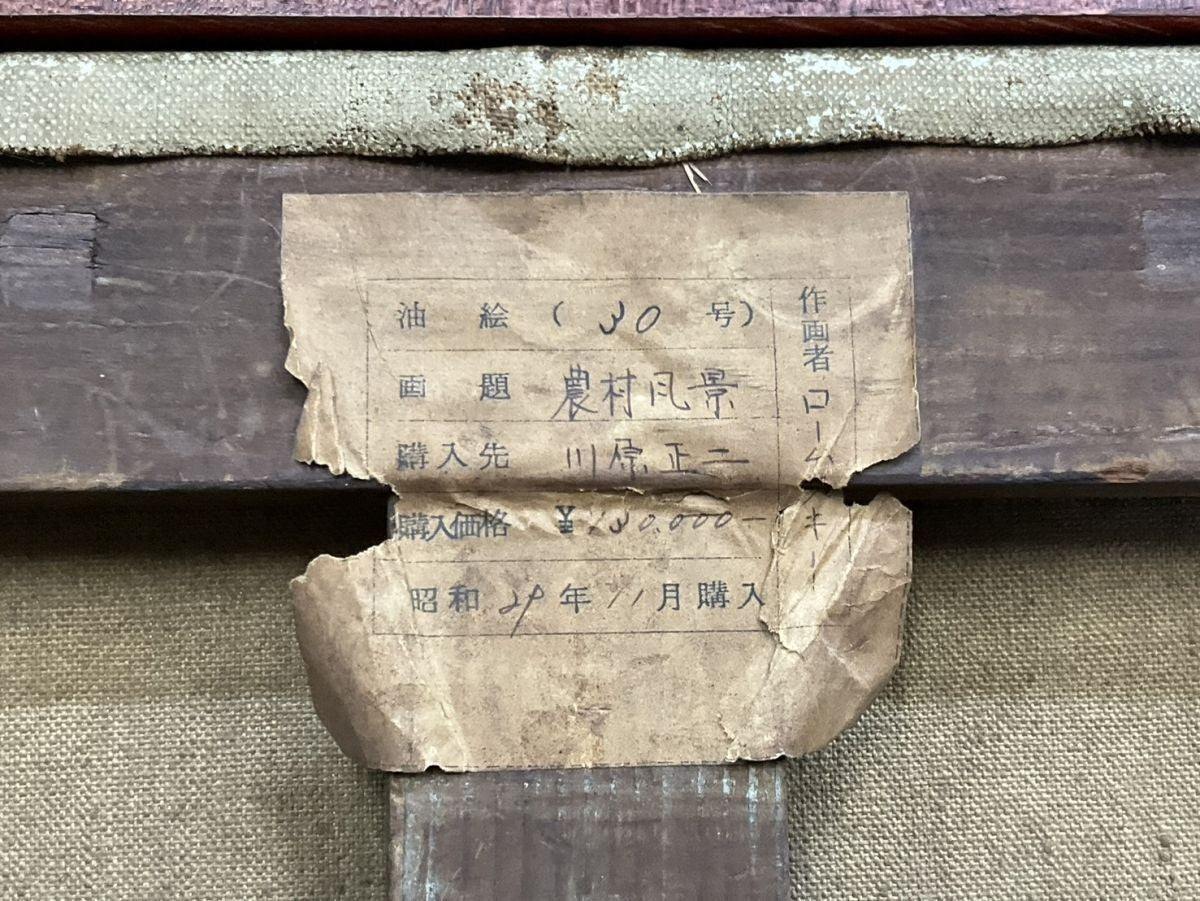 油絵（30号）
画題 農村風景
購入先 川原正二
購入価格 ¥130.000-
昭和29年11月購入
作画者 ロームキー